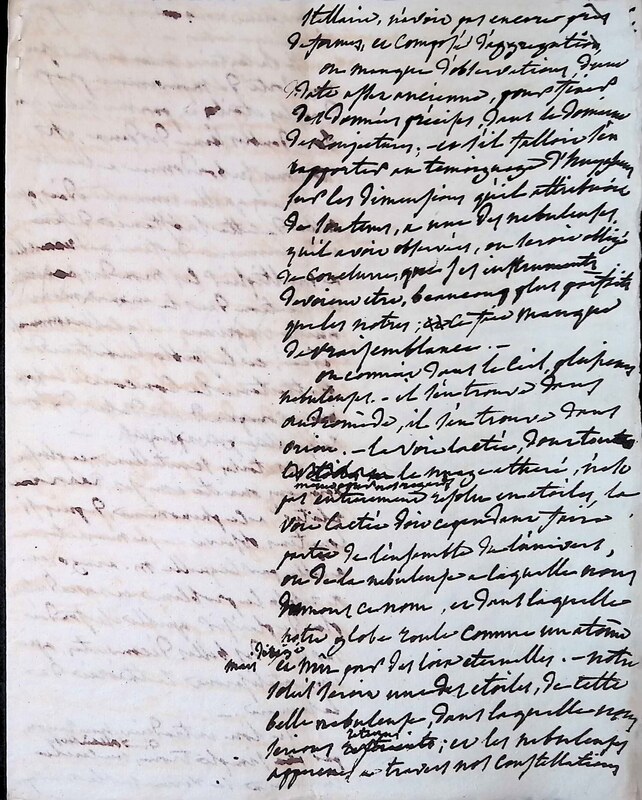 Stellaire, n'avoir pas encore pris
de formes, et composé d'aggregation,
on manque d'observations, d'une
date assez ancienne, pour
des données precises, dans le domaine
des conjectures; - et s'il falloit s'en
rapporter au temoignage d'Huygens
sur les dimensions qu'il attribuoit
de son tems, a une des nebuleuses,
qu'il avoit observées, on seroit obligé
de conclure, que ses instruments
devoient etre, beaucoup plus parfaits
que les notres; ce manque
de vraisemblance. -
on connoit dans le Ciel, plusieurs
nebuleuses. - il s'en trouve dans
andromède, il s'en trouve dans
orion. - la voie lactée, dont toute
le nuage n'est
pas entierement resolu en etoiles, la
voie lactée doit cependant faire
partie de l'ensemble de l'univers,
ou de la nebuleuse a laquelle nous
donnons ce nom, et dans laquelle
notre globe roule comme un atome
mais dirigé
et mû par des loix eternelles. - notre
soleil seroit une des etoiles, de cette
belle nebuleuse, dans laquelle nous
serions; et les nebuleuses
apperçues a travers nos constellations